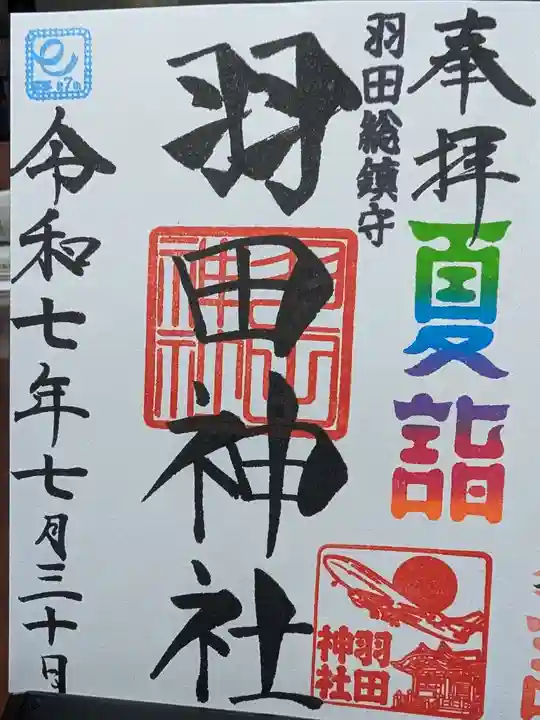 奉拝
夏詣
羽田総鎮守
羽田神社
羽田神社
羽田神社
令和七年七月三十日